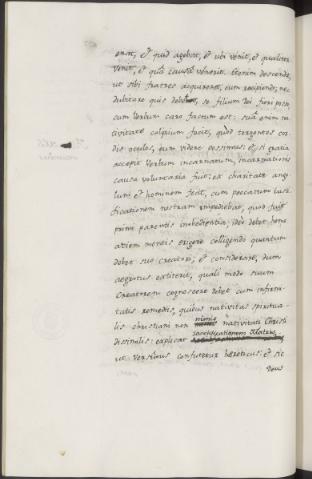 erat, et quid agebat, et ubi venit, et qualiter
venit, et qua causa venerit. Etenim descendit,
ut sibi fratres acquireret, eum recipiendi, ne
dubitare quis debet, se filium Dei fieri posse,
cum Verbum caro factum est: sua enim na
tivitate collyrium facit, quod tergentes cor
dis oculos, eum videre possimus, et si gratia
accepit Verbum incarnatum, Incarnationis
causa voluntaria fuit: ex charitate ang
lum et hominem fecit, cum peccatum iusti
ficationem nostram impediebat, quod fuit
primi parentis inobedientia; ideo debet homo
aciem mentis erigere colligendo quantum
debet suo Creatori, et considerare, dum
aegrotus extiterit, quali modo suum
Creatorem cognoscere debet cum infirmi
tatis remedio, quibus nativitas spiritua
lis christiani non nimis nativitati Christi
dissimilis: explicat sanctificationem
ut versibus confutetur haereticus: et sic
Deus